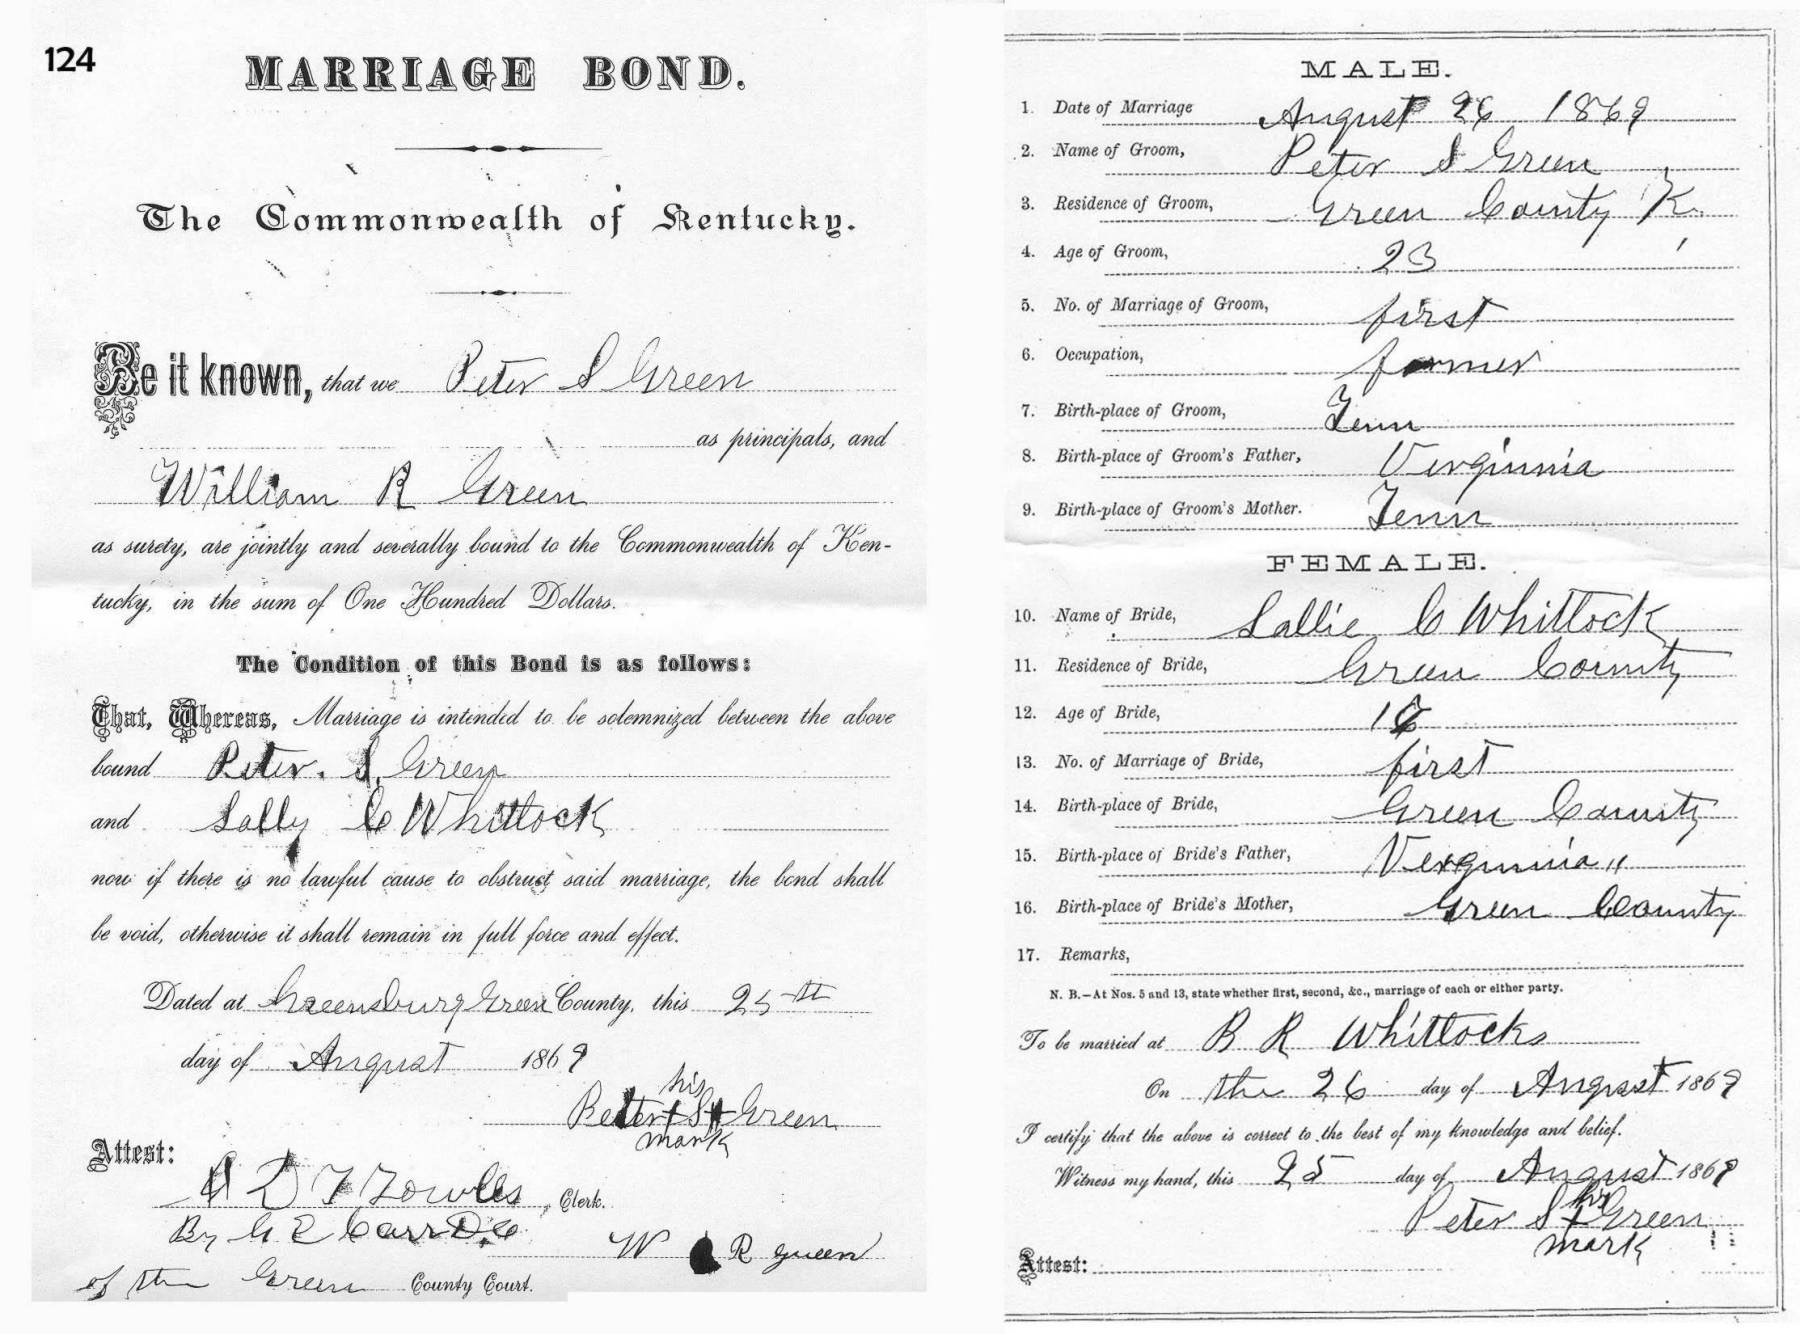 124
MARRIAGE BOND.
The Commonwealth of Kentucky.
Be it known, that we Peter S Green
as principals, and
William R Green
as surety, are jointly and severally bound to the Commonwealth of Ken-
tucky, in the sum of One Hundred Dollars.
The Condition of this Bond is as follows:
That, Whereas, Marriage is intended to be solemnized between the above
bound Peter. S. Green
and Sally C Whittock
now if there is no lawful cause to obstruct said marriage, the bond shall
be void, otherwise it shall remain in full force and effect.
Dated at Greensburg Green County, this 25th
day of August 1869
his
Peter S + Green
mark
Attest:
D T Towles, Clerk.
By G E Carr D.C
of the Green County Court.
W R green
MALE.
1. Date of Marriage August 26 1869
2. Name of Groom, Peter S Green
3. Residence of Groom, Green County K.
4. Age of Groom, 23
5. No. of Marriage of Groom, first
6. Occupation, farmer
7. Birth-place of Groom, Tenn
8. Birth-place of Groom's Father, Verginnia
9. Birth-place of Groom's Mother. Tenn
FEMALE.
10. Name of Bride, Sallie C Whittock
11. Residence of Bride, Green County
12. Age of Bride, 16
13. No. of Marriage of Bride, first
14. Birth-place of Bride, Green County
15. Birth-place of Bride's Father, Verginnia "
16. Birth-place of Bride's Mother, Green County
17. Remarks,
N. B.—At Nos. 5 and 13, state whether first, second, &c., marriage of each or either party.
To be married at B R Whittocks
On the 26 day of August 1869
I certify that the above is correct to the best of my knowledge and belief.
Witness my hand, this 25 day of August 1869
his
Peter S + Green
mark
Attest: